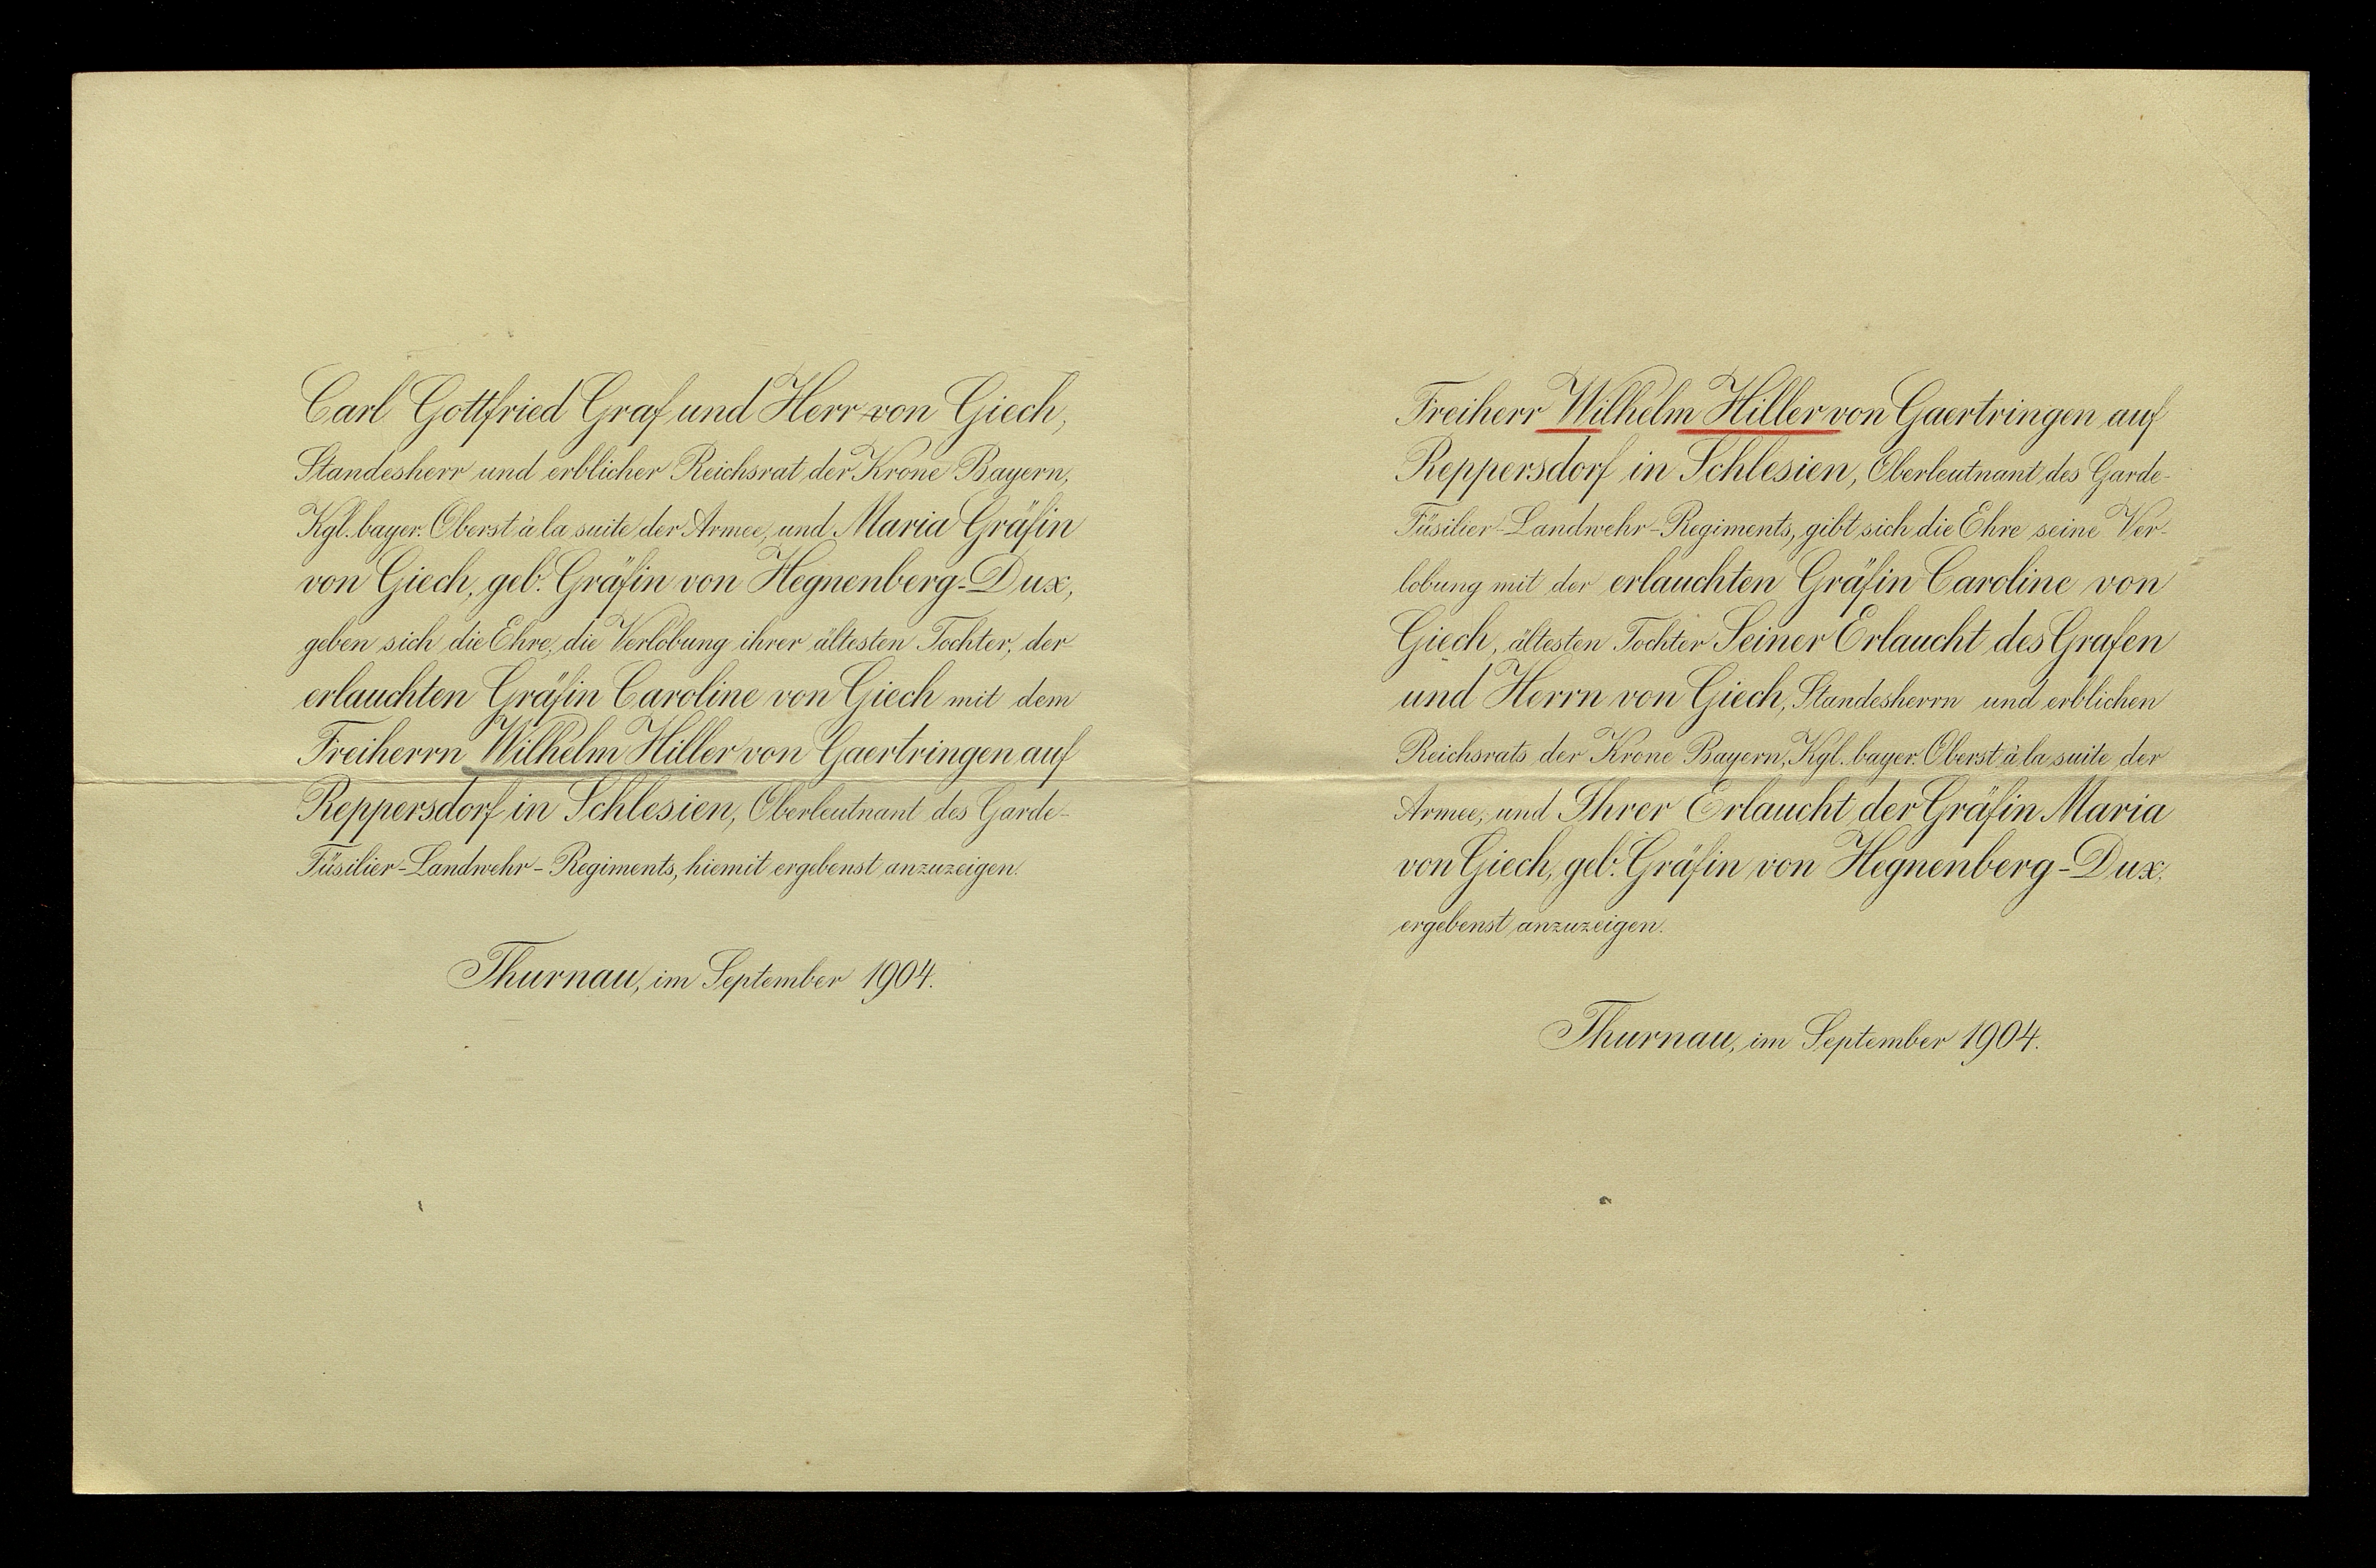 Carl Gottfried Graf und Herr von Giech,
Standesherr und erblicher Reichsrat der Krone Bayern,
Kgl. bayer. Oberst à la suite der Armee, und Maria Gräfin
von Giech, geb. Gräfin von Hegnenberg-Dux,
geben sich die Ehre, die Verlobung ihrer ältesten Tochter, der
erlauchten Gräfin Caroline von Giech mit dem
Freiherrn Wilhelm Hiller von Gaertringen auf
Reppersdorf in Schlesien, Oberleutnant des Garde-
Füsilier-Landwehr-Regiments, hiemit ergebenst anzuzeigen.
Thurnau, im September 1904.
Freiherr Wilhelm Hiller von Gaertringen auf
Reppersdorf in Schlesien, Oberleutnant des Garde-
Füsilier-Landwehr-Regiments, gibt sich die Ehre seine Ver-
lobung mit der erlauchten Gräfin Caroline von
Giech, ältesten Tochter Seiner Erlaucht des Grafen
und Herrn von Giech, Standesherrn und erblichen
Reichsrats der Krone Bayern, Kgl. bayer. Oberst à la suite der
Armee, und Ihrer Erlaucht der Gräfin Maria
von Giech, geb. Gräfin von Hegnenberg-Dux,
ergebenst anzuzeigen.
Thurnau, im September 1904.